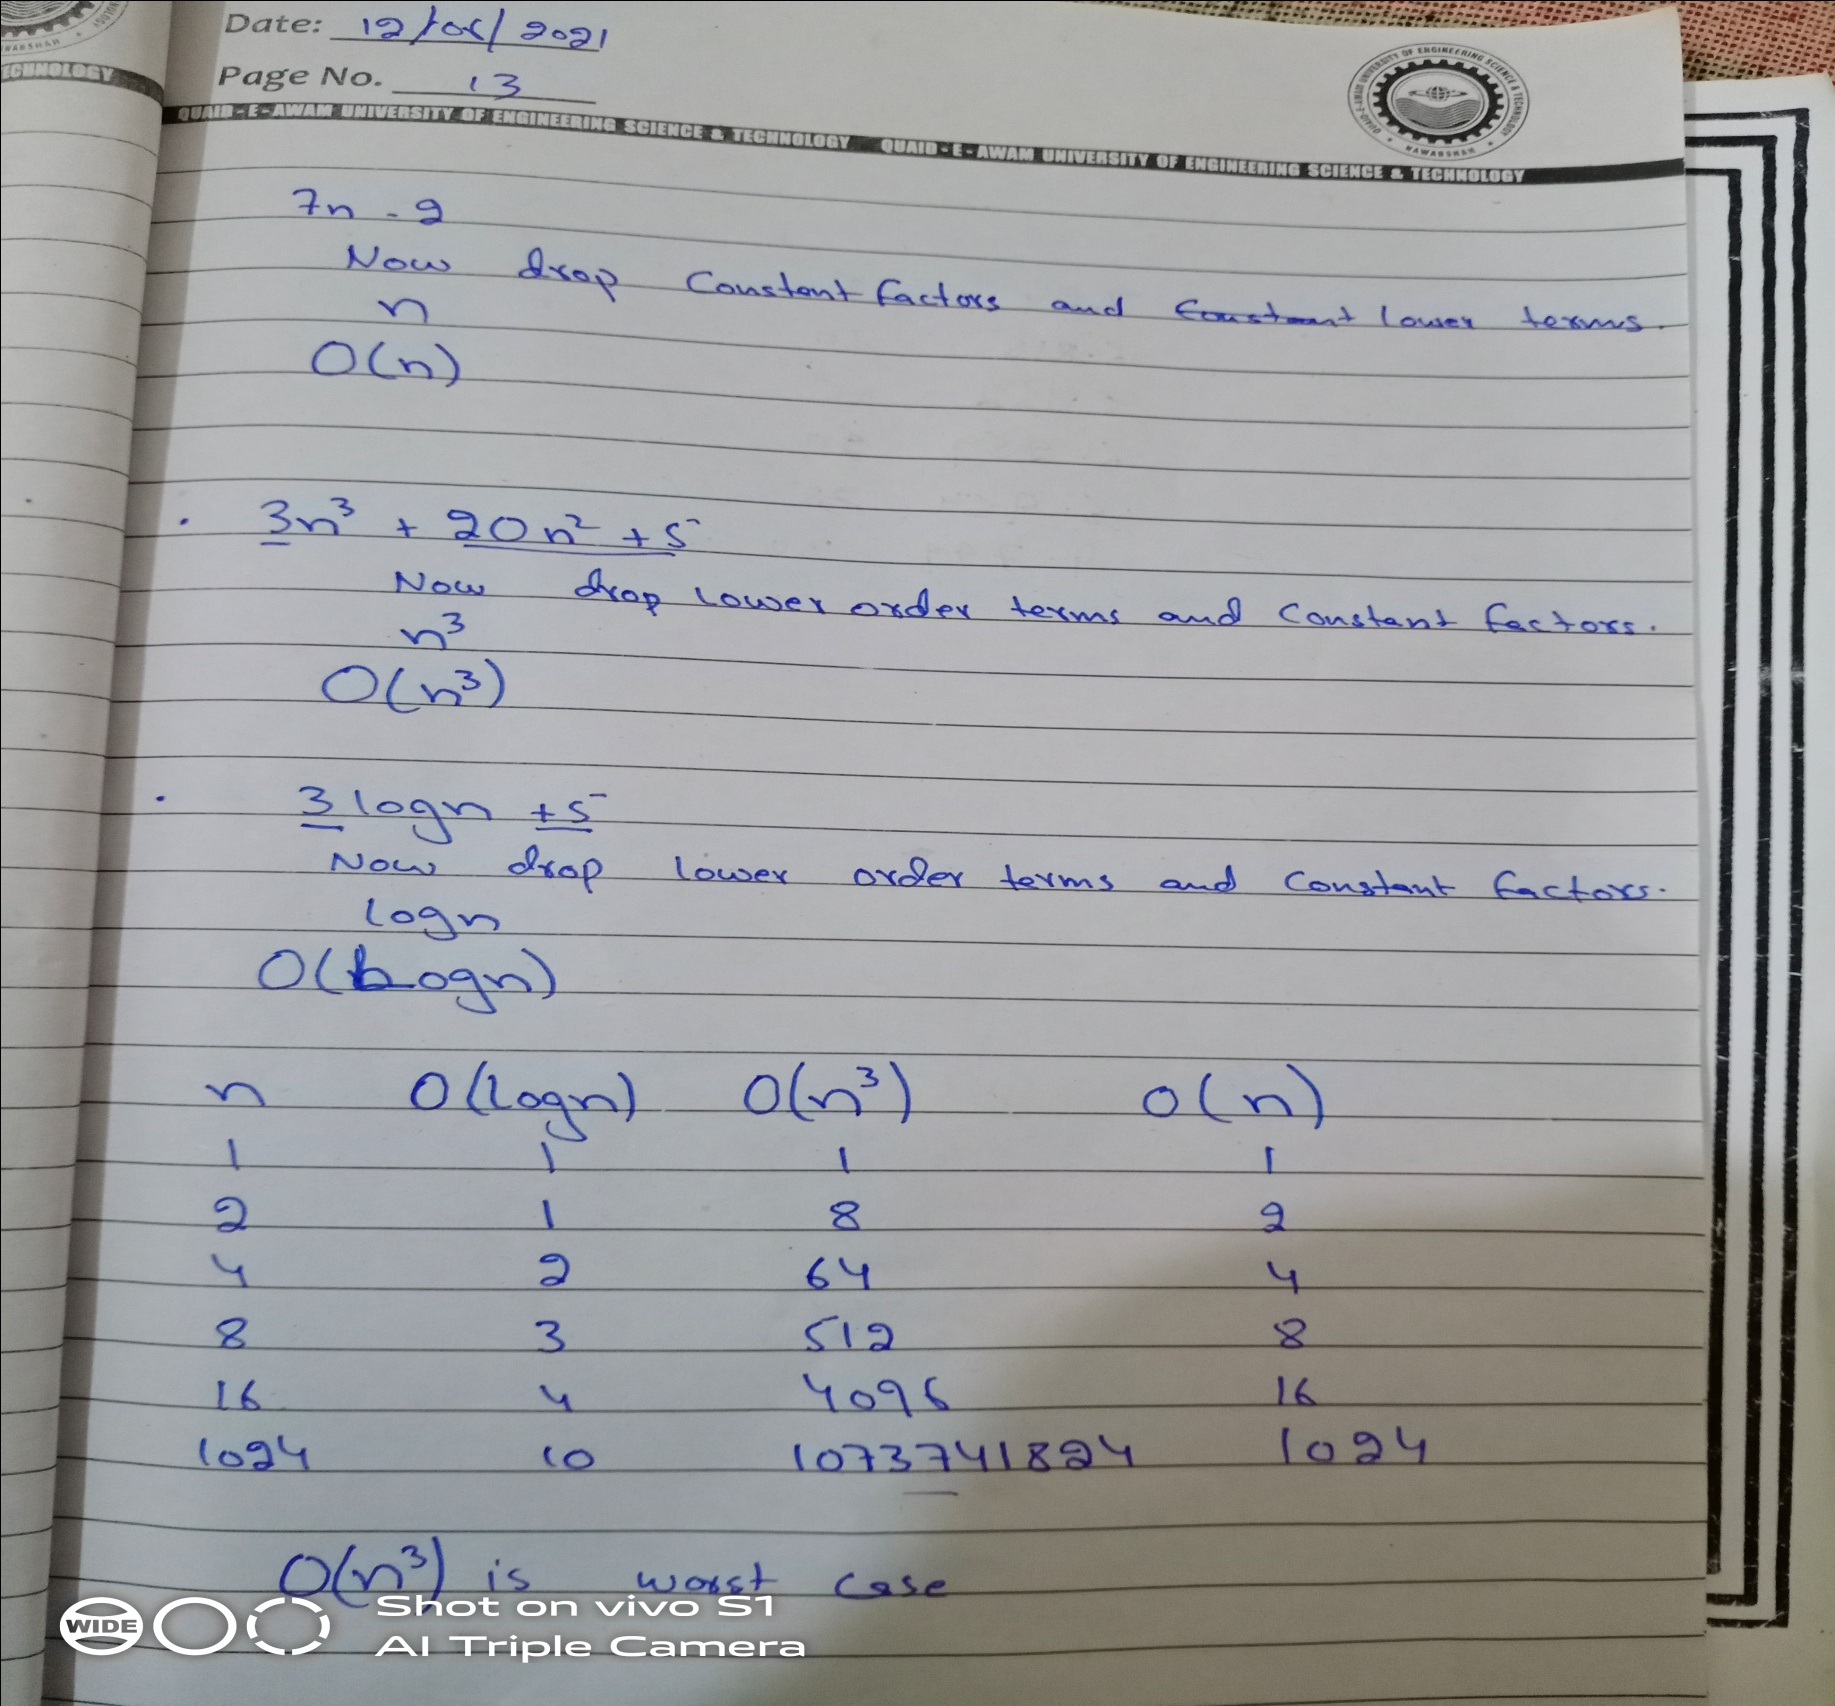 Date: 12/06/2021
Page No. 13
QUAID-E-AWAM UNIVERSITY OF ENGINEERING SCIENCE & TECHNOLOGY QUAID-E-AWAM UNIVERSITY OF ENGINEERING SCIENCE & TECHNOLOGY
ECHNOLOGY
7n - 2
Now drop Constant factors and Constant lower terms.
n
O(n)
. 3n³ + 20n² + 5
Now drop lower order terms and Constant factors.
n³
O(n³)
. 3 logn + 5
Now drop lower order terms and Constant factors.
logn
O(Logn)
n O(logn) O(n³) O(n)
1 1 1 1
2 1 8 2
4 2 64 4
8 3 512 8
16 4 4096 16
1024 10 1073741824 1024
O(n³) is worst case
WIDE
Shot on vivo S1
AI Triple Camera